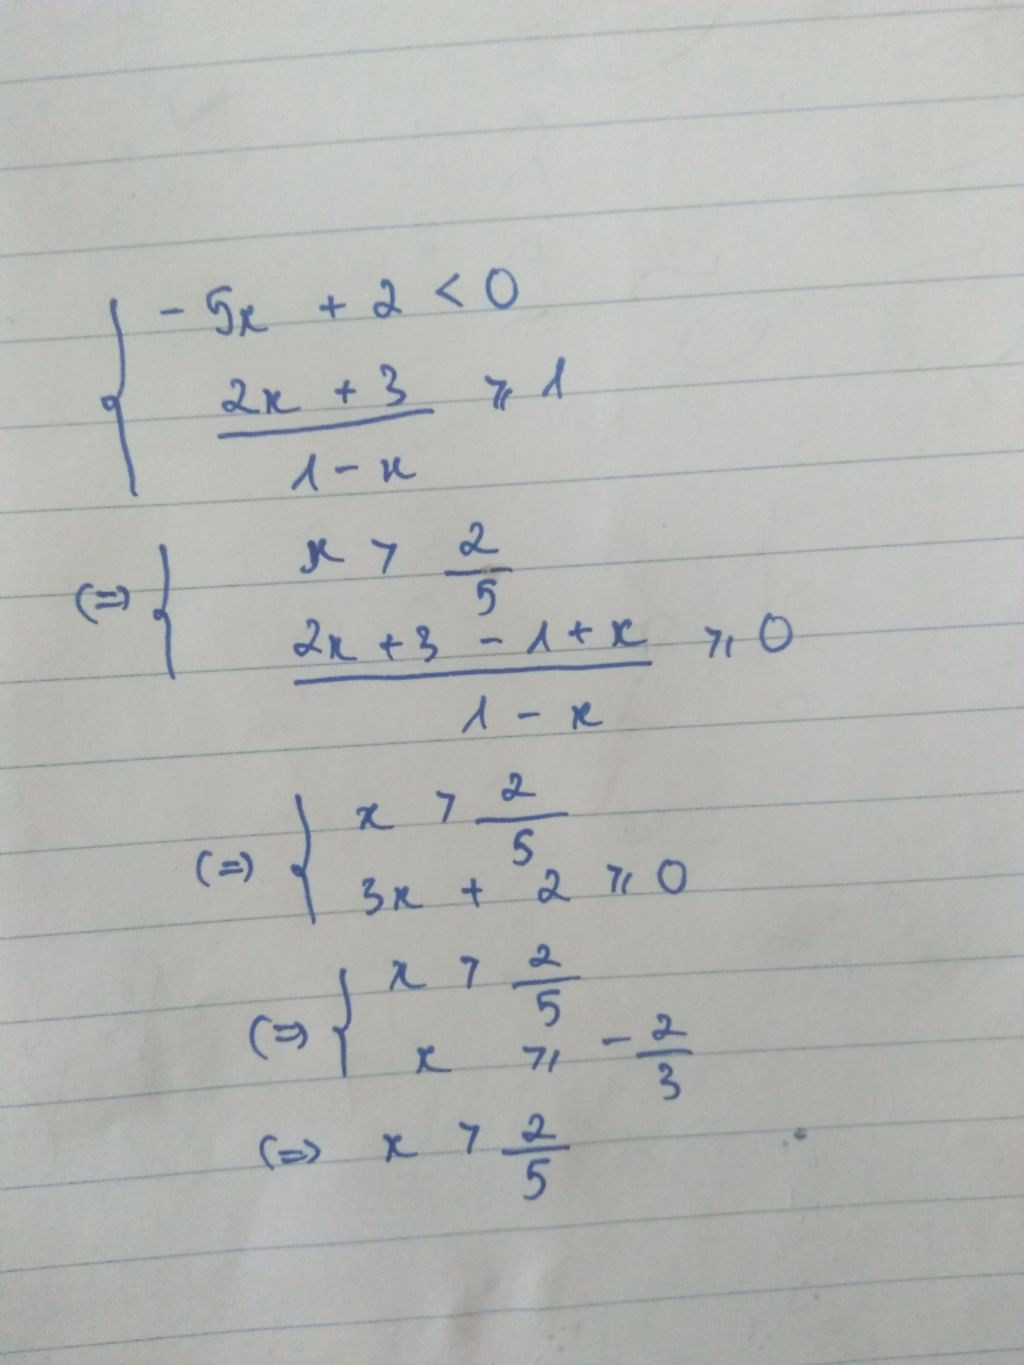 { - 5x + 2 < 0
2x + 3 ⩾ 1
1 - x
x > 2
(=>) { 5
2x + 3 - 1 + x ⩾ 0
1 - x
x > 2
(=>) { 5
3x + 2 ⩾ 0
x > 2
(=>) { 5
x ⩾ - 2
3
(=>) x > 2
5